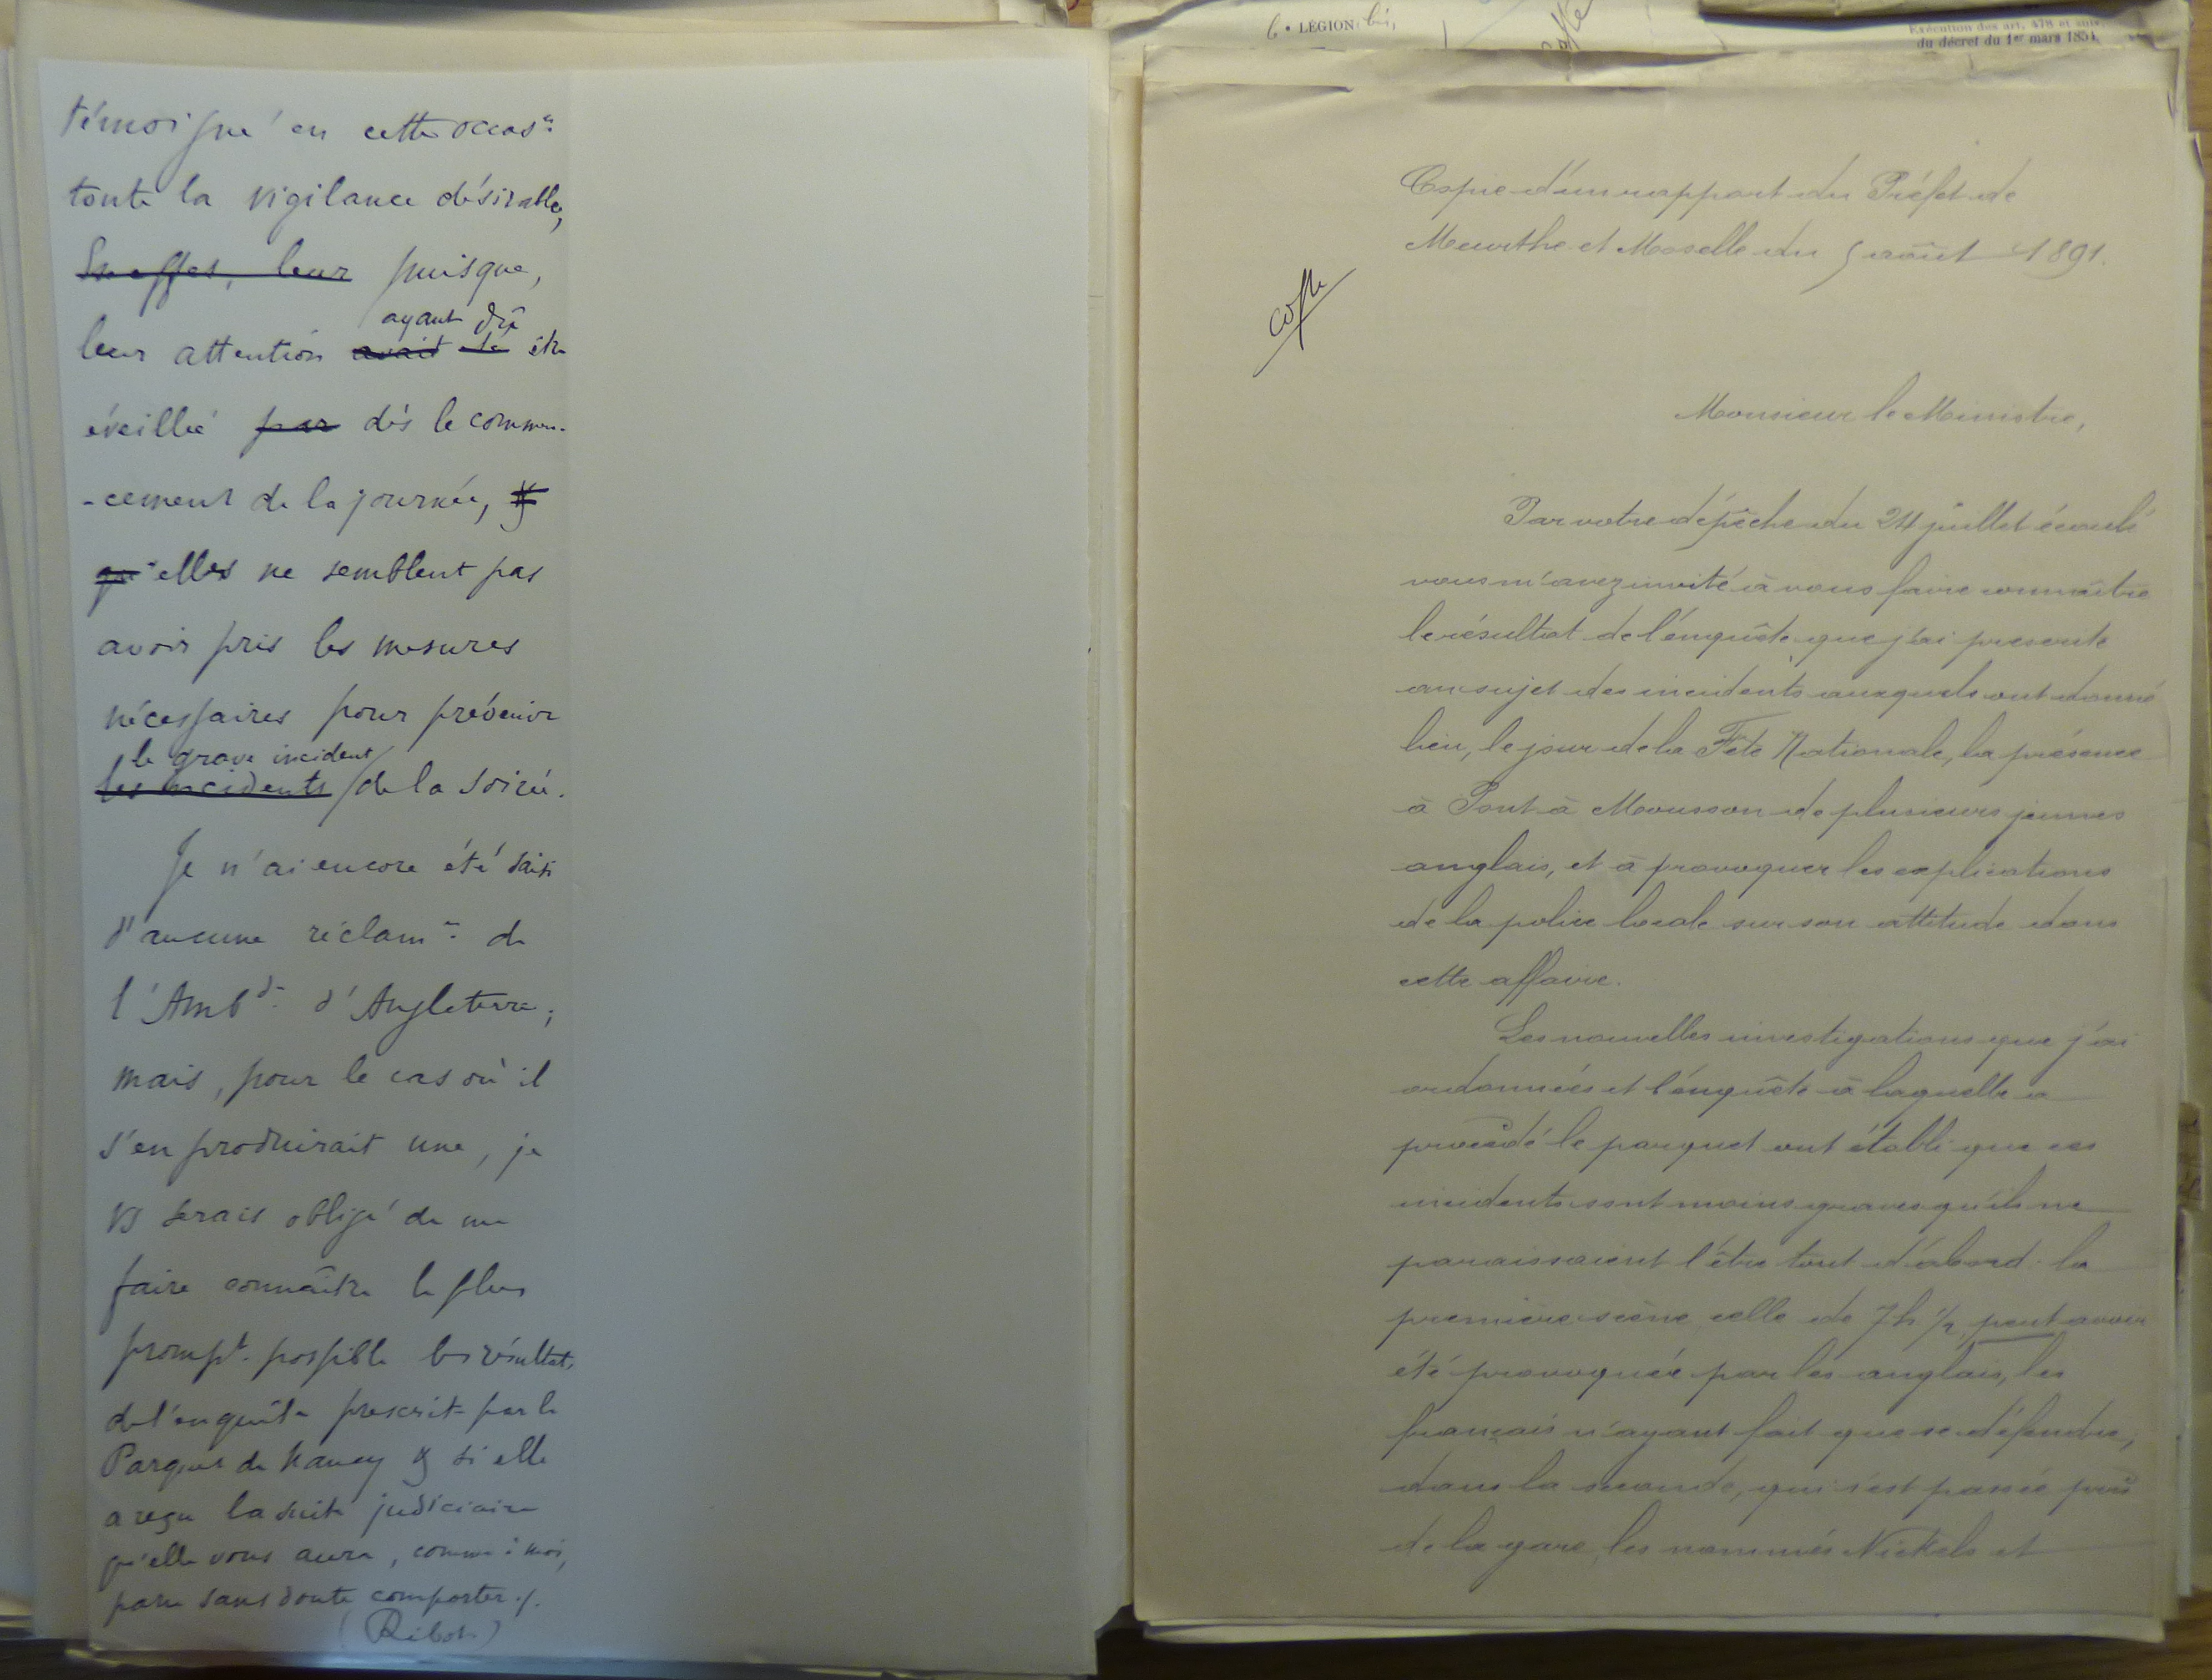 témoigné en cette occas.n
toute la vigilance désirable,
En effet, leur puisque,
ayant dû
leur attention avait été être
éveillée par dès le commen-
-cement de la journée, &
qu'elles ne semblent pas
avoir pris les mesures
nécessaires pour prévenir
le grave incident
les incidents de la soirée.
Je n'ai encore été saisi
d'aucune réclam.n de
l'Amb.de d'Angleterre;
mais, pour le cas où il
s'en produirait une, je
vs serais obligé de me
faire connaître le plus
prompt. possible les résultats
de l'enquête prescrite par le
Parquet de Nancy & si elle
a reçu la suite judiciaire
qu'elle vous aura, comme à moi,
paru sans doute comporter ./.
(Ribot)
6e LÉGION bis,
Exécution des art. 478 et suiv.
du décret du 1er mars 1854
Copie d'un rapport du Préfet de
Meurthe et Moselle du 5 août 1891.
Monsieur le Ministre,
Par votre dépêche du 24 juillet écoulé
vous m'avez invité à vous faire connaître
le résultat de l'enquête que j'ai prescrite
au sujet des incidents auxquels ont donné
lieu, le jour de la Fête Nationale, la présence
à Pont à Mousson de plusieurs jeunes
anglais, et à provoquer les explications
de la police locale sur son attitude dans
cette affaire.
Les nouvelles investigations que j'ai
ordonnées et l'enquête à laquelle a
procédé le parquet ont établi que ces
incidents sont moins graves qu'ils ne
paraissaient l'être tout d'abord: la
première scène, celle de 7h 1/2 peut avoir
été provoquée par les anglais, les
français n'ayant fait que se défendre;
dans la seconde, qui s'est passée près
de la gare, les nommés Nickels et